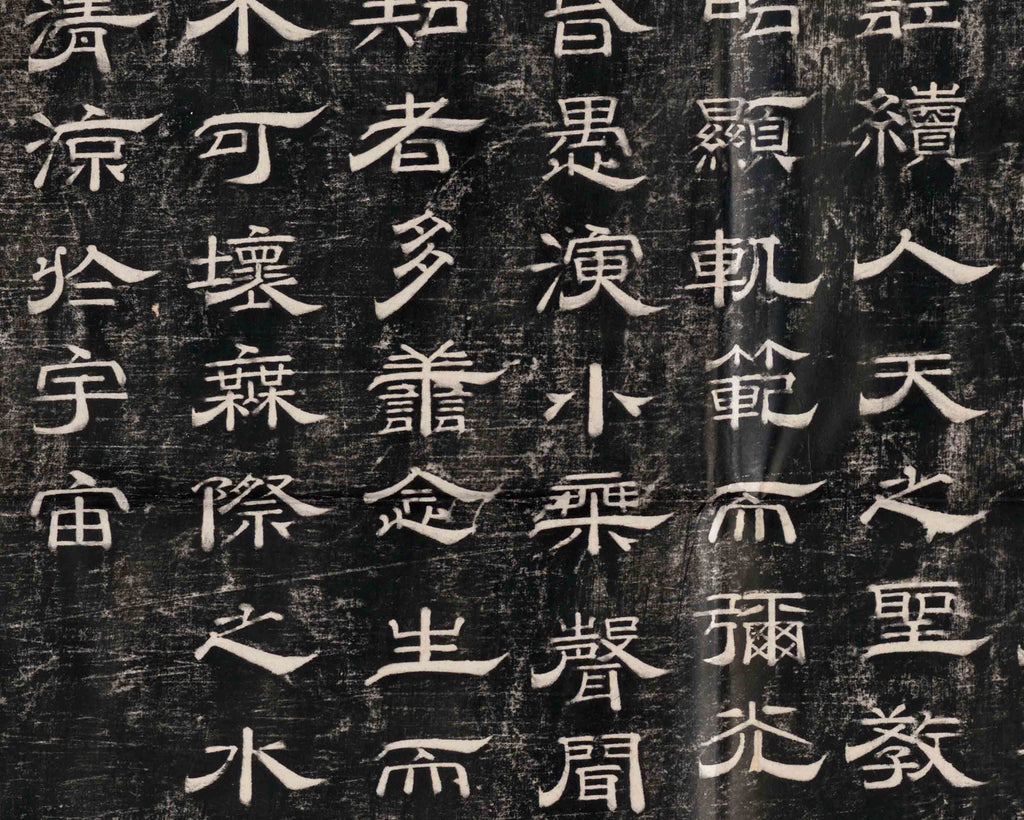 續人天之聖教
顯軌範而彌光
昏愚演小乘聲聞
者多譱念生而
不可壞無際之水
清涼於宇宙